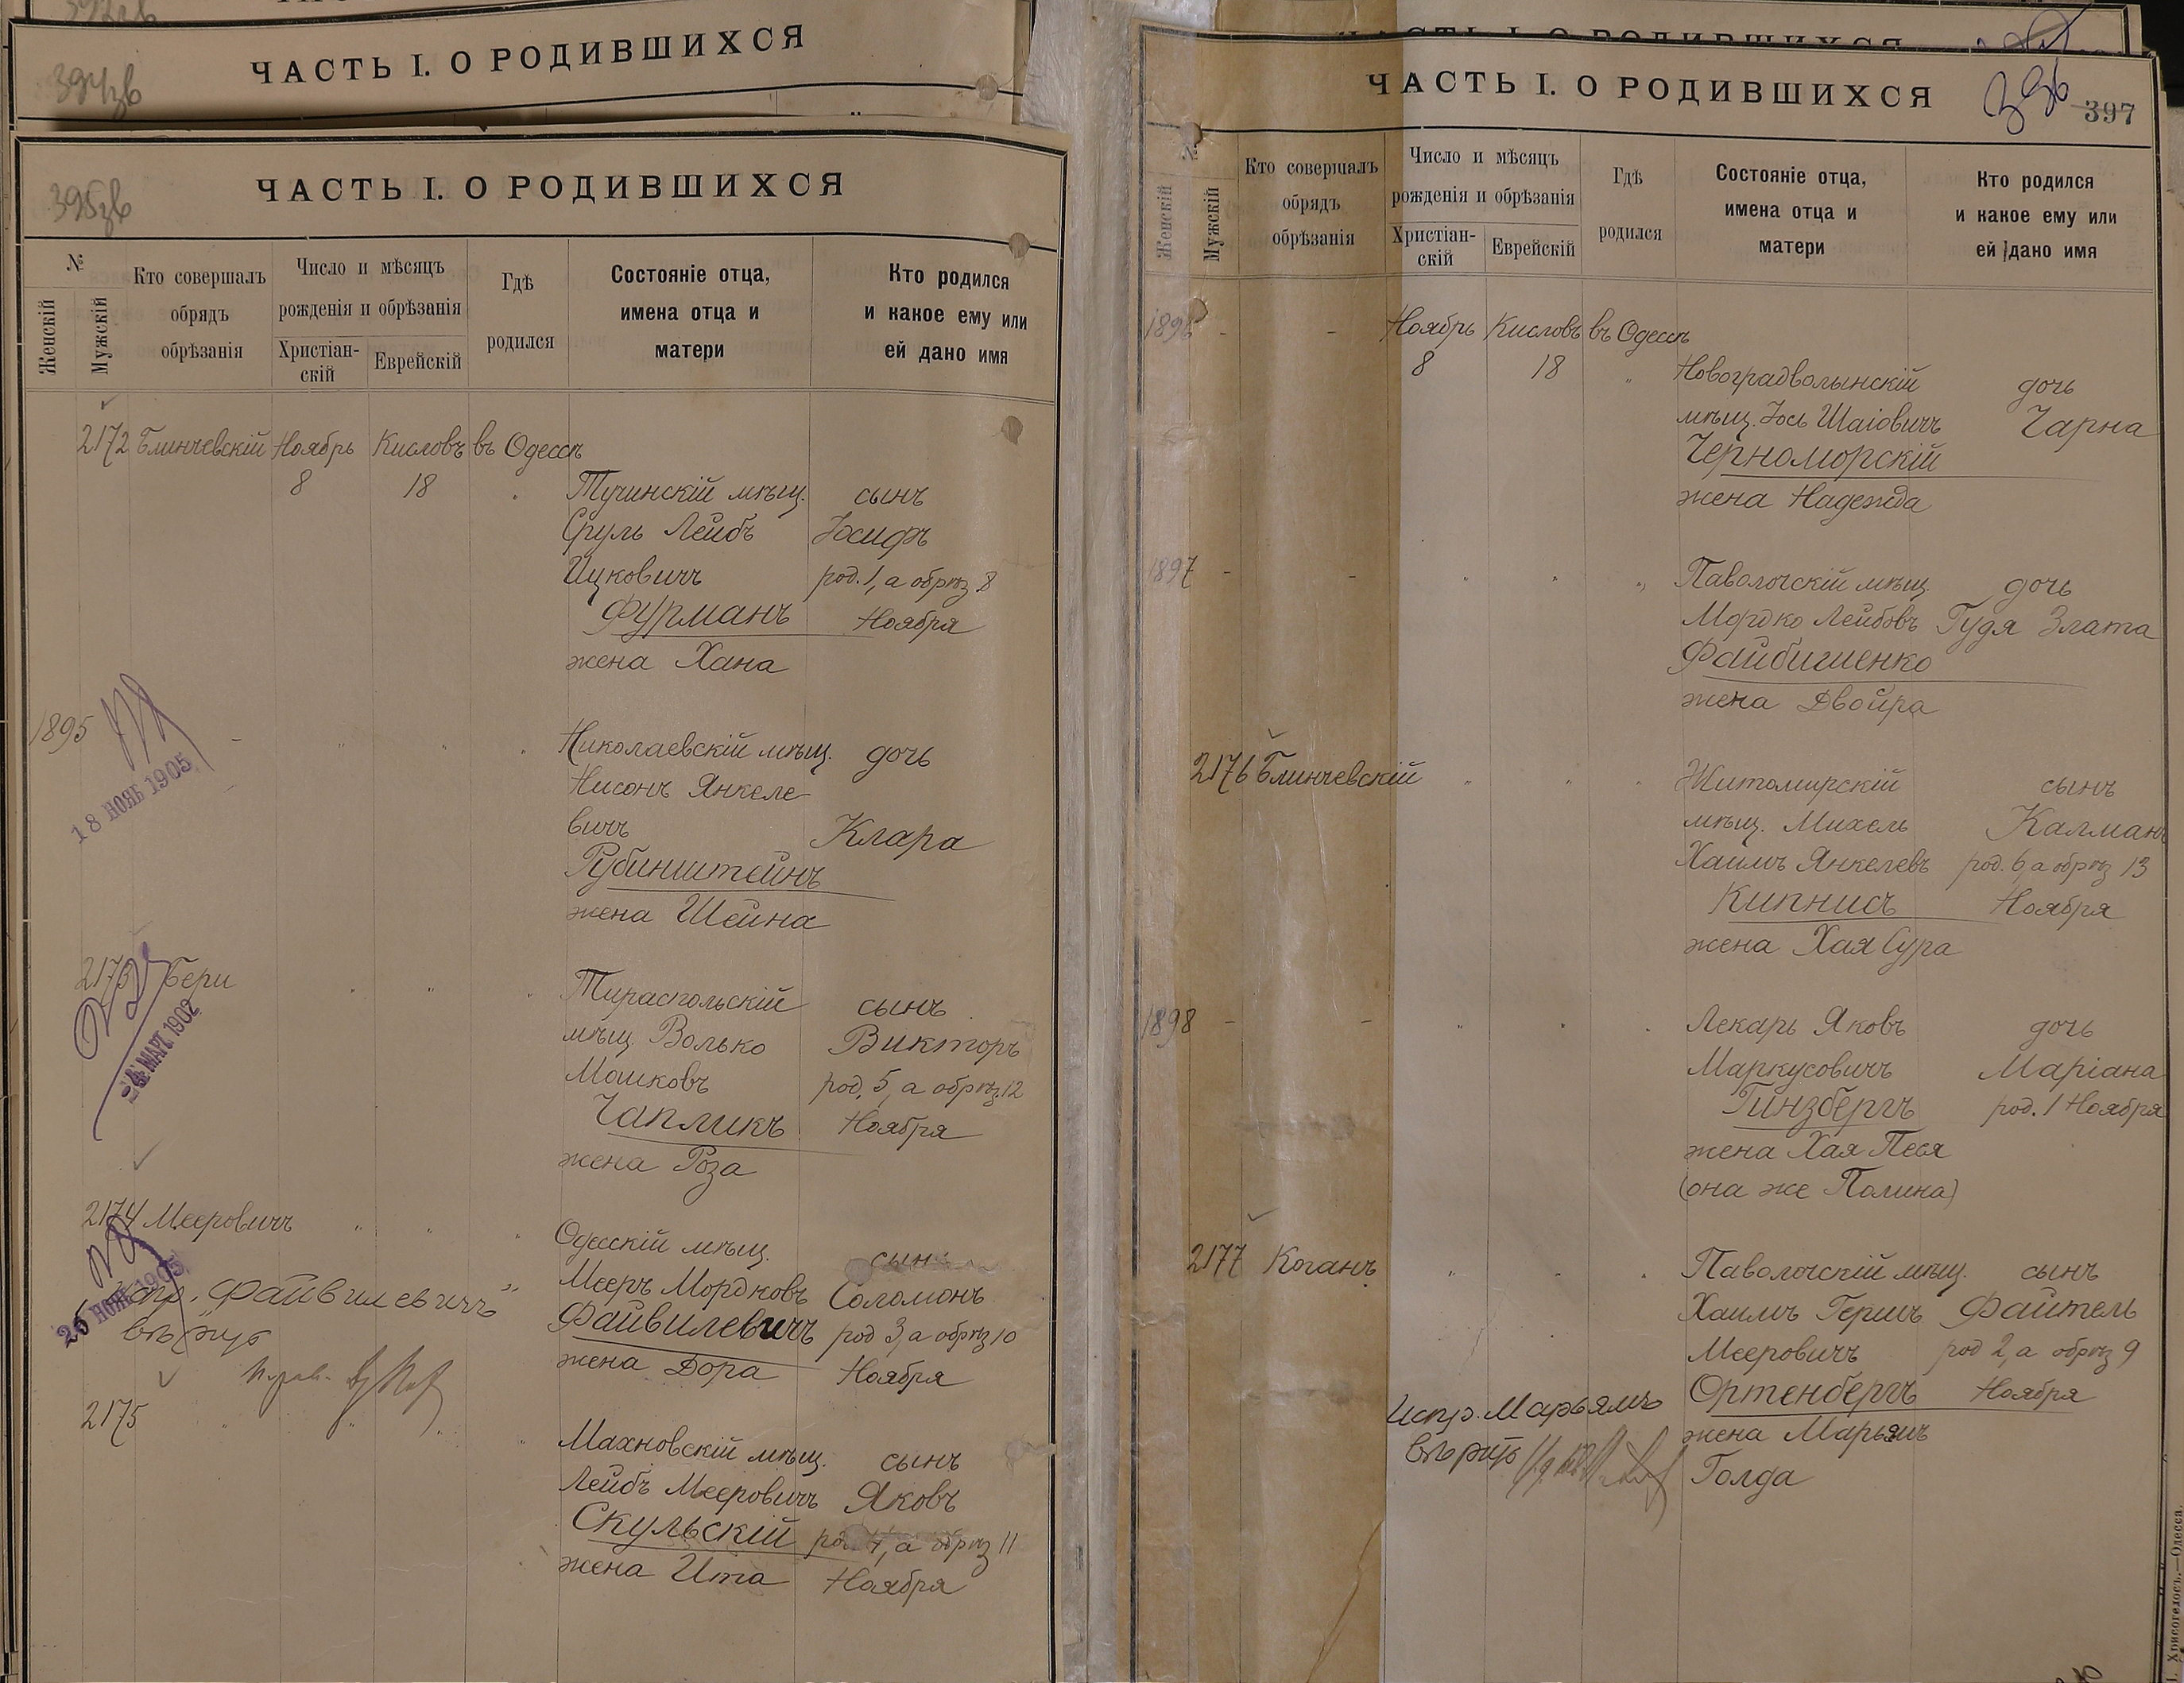 394зв
ЧАСТЬ I. О РОДИВШИХСЯ
395зв
ЧАСТЬ I. О РОДИВШИХСЯ
№
Женскій
Мужскій
Кто совершалъ
обрядъ
обрѣзанія
Число и мѣсяцъ
рожденія и обрѣзанія
Христіан-
скій
Еврейскій
Гдѣ
родился
Состояніе отца,
имена отца и
матери
Кто родился
и какое ему или
ей дано имя
2172 Блинчевскій Ноябрь Кисловъ въ Одессѣ
8 18 " Тучинскій мѣщ. сынъ
Сруль Лейбъ Іосифъ
Ицковичъ род. 1, а обрѣз 8
Фурманъ Ноября
жена Хана
1895 - " " " Николаевскій мѣщ. дочь
Нисонъ Янкеле
вичъ Клара
Рубинштейнъ
жена Шейна
18 НОЯБ 1905
2173 Бери " " " Тираспольскій сынъ
мѣщ. Волько Викторъ
Мошковъ род. 5, а обрѣз. 12
Чапликъ Ноября
жена Роза
-4 МАРТ 1902
2174 Мееровичъ " " " Одесскій мѣщ. сынъ
Мееръ Мордковъ Соломонъ
Файвилевичъ род 3, а обрѣз 10
жена Дора Ноября
Испр. "Файвилевичъ"
вѣрно
25 НОЯБ 1905
2175 " " " " Махновскій мѣщ. сынъ
Лейбъ Мееровичъ Яковъ
Скульскій род. 4, а обрѣз 11
жена Ита Ноября
ЧАСТЬ I. О РОДИВШИХСЯ
ЧАСТЬ I. О РОДИВШИХСЯ
396
397
№
Женскій
Мужскій
Кто совершалъ
обрядъ
обрѣзанія
Число и мѣсяцъ
рожденія и обрѣзанія
Христіан-
скій
Еврейскій
Гдѣ
родился
Состояніе отца,
имена отца и
матери
Кто родился
и какое ему или
ей дано имя
1896 - - Ноябрь Кисловъ въ Одессѣ
8 18 " Новоградволынскій дочь
мѣщ. Іось Шаіовичъ Чарна
Черноморскій
жена Надежда
1897 - - " " " Паволочскій мѣщ. дочь
Мордко Лейбовъ Гудя Злата
Файбишенко
жена Двойра
2176 Блинчевскій " " " Житомирскій сынъ
мѣщ. Михель Калманъ
Хаимъ Янкелевъ род. 6, а обрѣз 13
Кипнисъ Ноября
жена Хая Сура
1898 - - " " " Лекарь Яковъ дочь
Маркусовичъ Маріана
Гинзбергъ род. 1 Ноября
жена Хая Песя
(она же Полина)
2177 Коганъ " " " Паволочскій мѣщ. сынъ
Хаимъ Гершъ Файтель
Мееровичъ род 2, а обрѣз 9
Ортенбергъ Ноября
жена Марьямъ
Голда
Испр. Марьямъ
вѣрно
Хрисогелосъ.—Одесса.